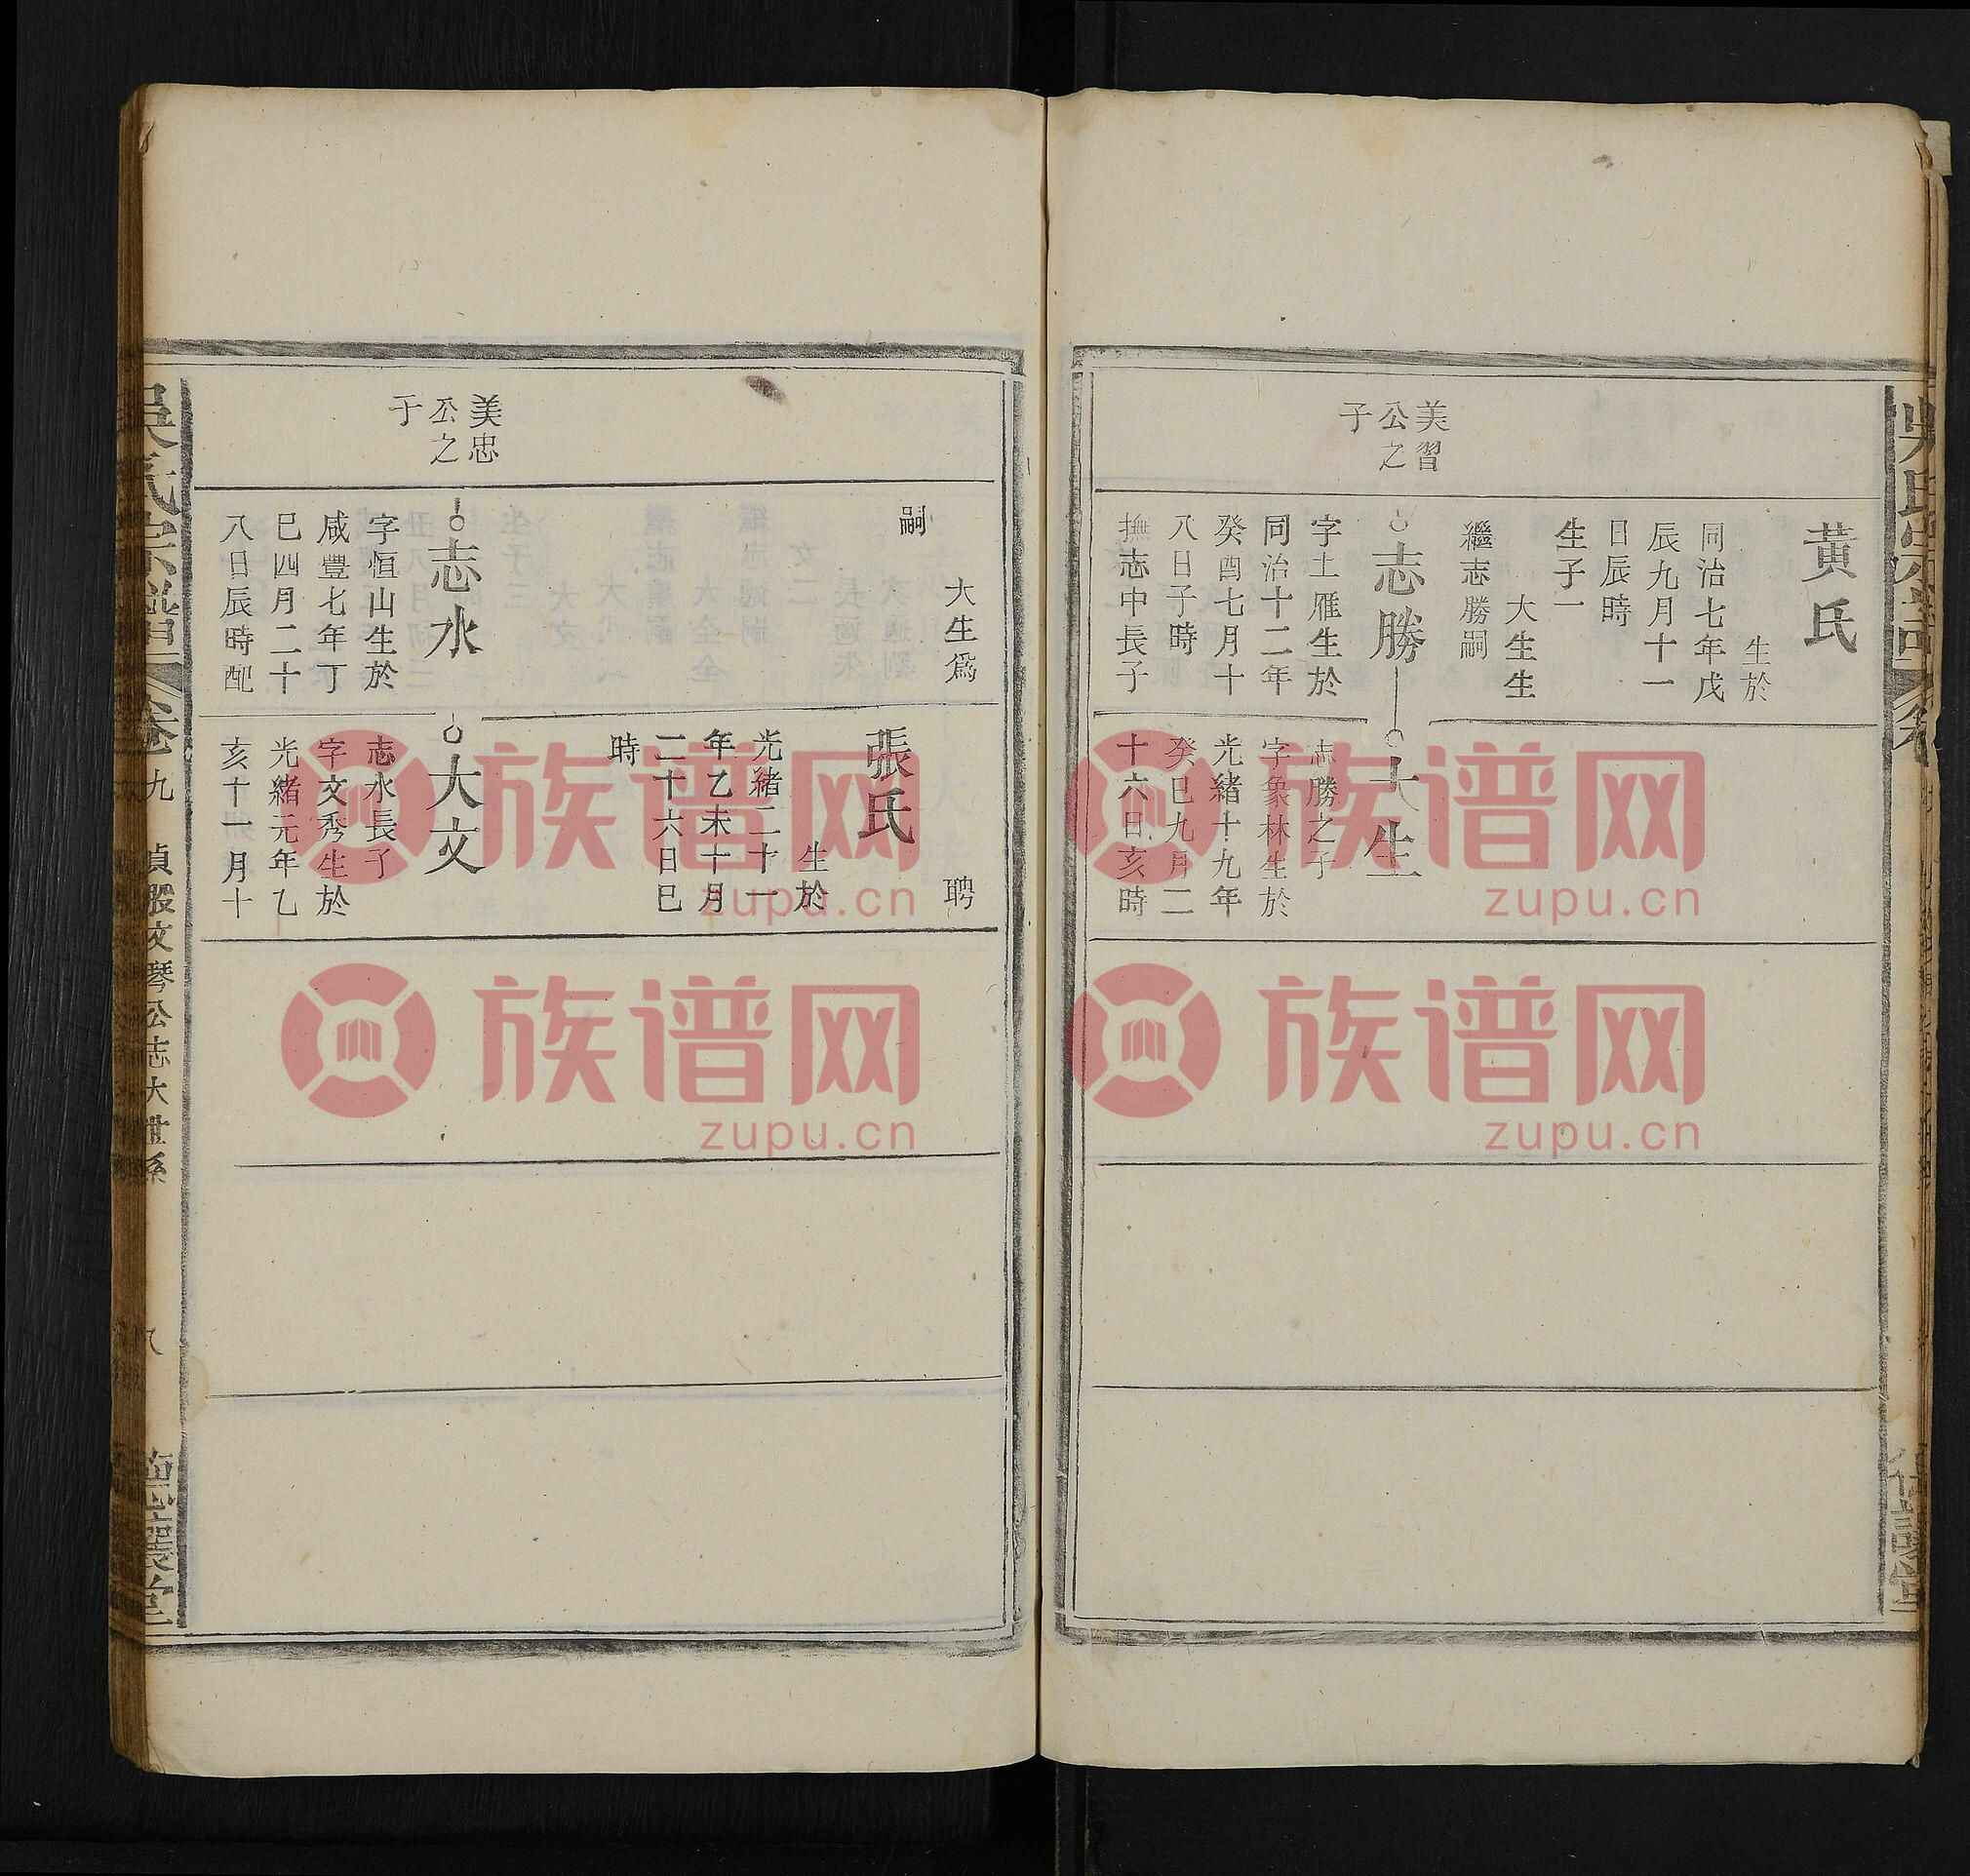 美習
公之
子
黃氏
生於
同治七年戊
辰九月十一
日辰時
生子一
大生生
繼志勝嗣
志勝
字士雁生於
同治十二年
癸酉七月十
八日子時
撫志中長子
大生
志勝之子
字象林生於
光緒十九年
癸巳九月二
十六日亥時
美忠
公之
子
大生爲
嗣
志水
字恒山生於
咸豐七年丁
巳四月二十
八日辰時配
聘
張氏
生於
光緒二十一
年乙未十月
二十六日巳
時
大文
志水長子
字文秀生於
光緒元年乙
亥十一月十
吳氏宗譜
卷九
文琴公志大世系
八
族谱网
zupu.cn
族谱网
zupu.cn
族谱网
zupu.cn
族谱网
zupu.cn